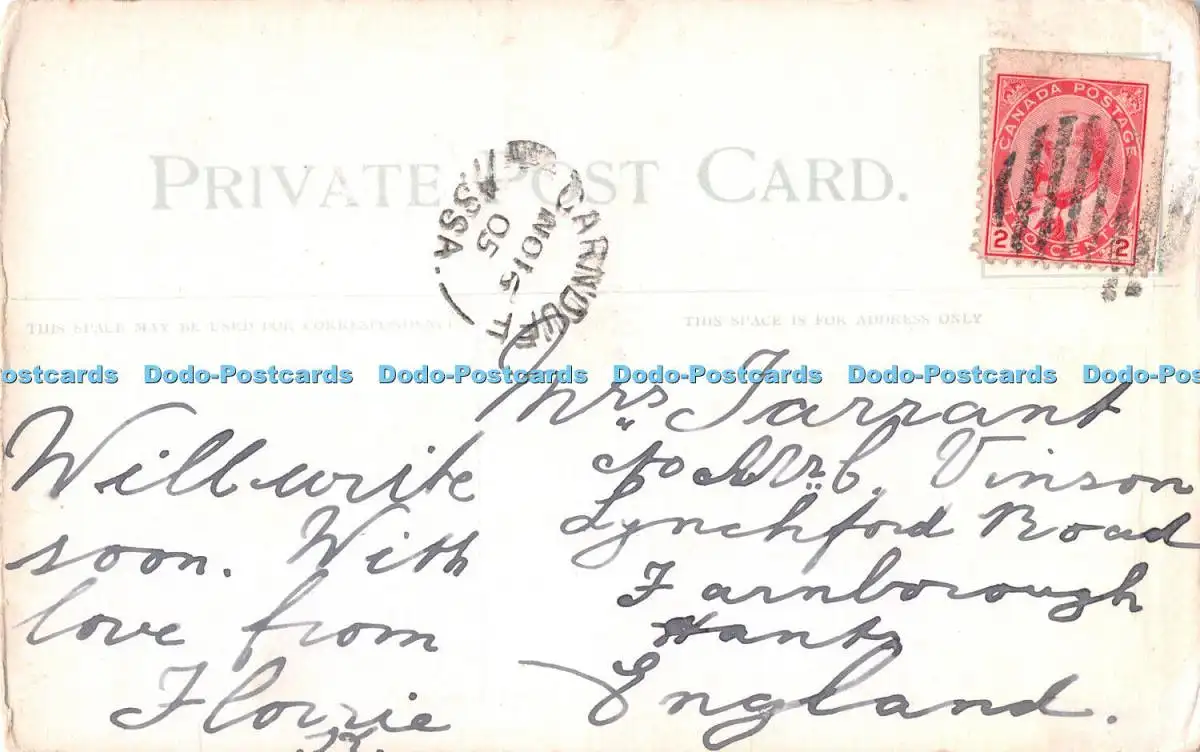 PRIVATE POST CARD.
CANADA POSTAGE
TWO CENTS
2 2
CARNDUFF
NO 16
05
ASSA.
THIS SPACE MAY BE USED FOR CORRESPONDENCE
THIS SPACE IS FOR ADDRESS ONLY
Dodo-Postcards Dodo-Postcards Dodo-Postcards Dodo-Postcards
Will write
soon. With
love from
Florrie
Mrs Tarrant
c/o Mr C. Vinson
Lynchford Road
Farnborough
Hants
England.